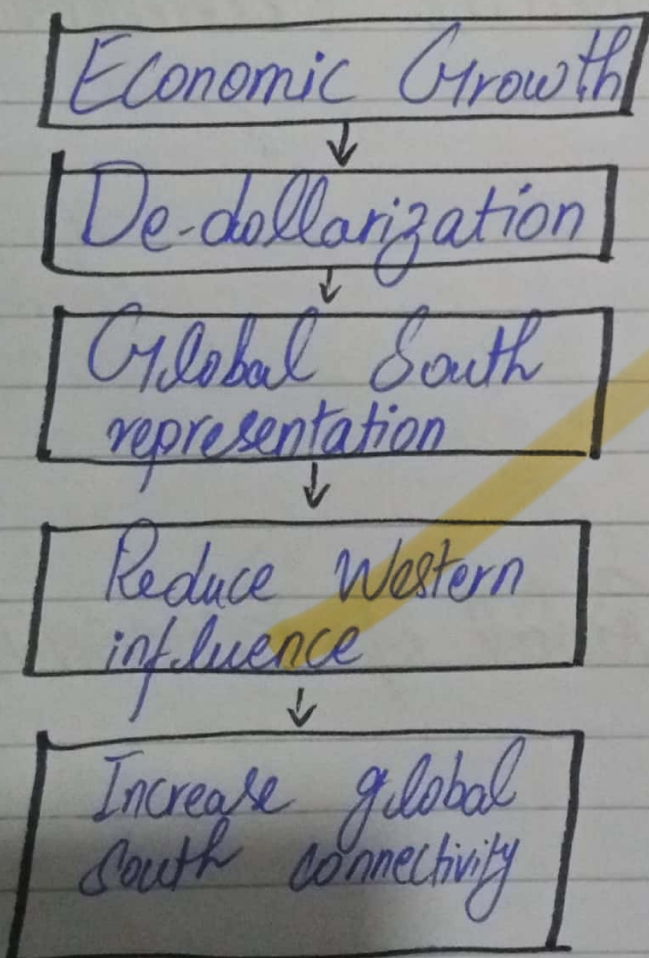 Economic Growth
De-dollarization
Global South
representation
Reduce Western
influence
Increase global
South connectivity